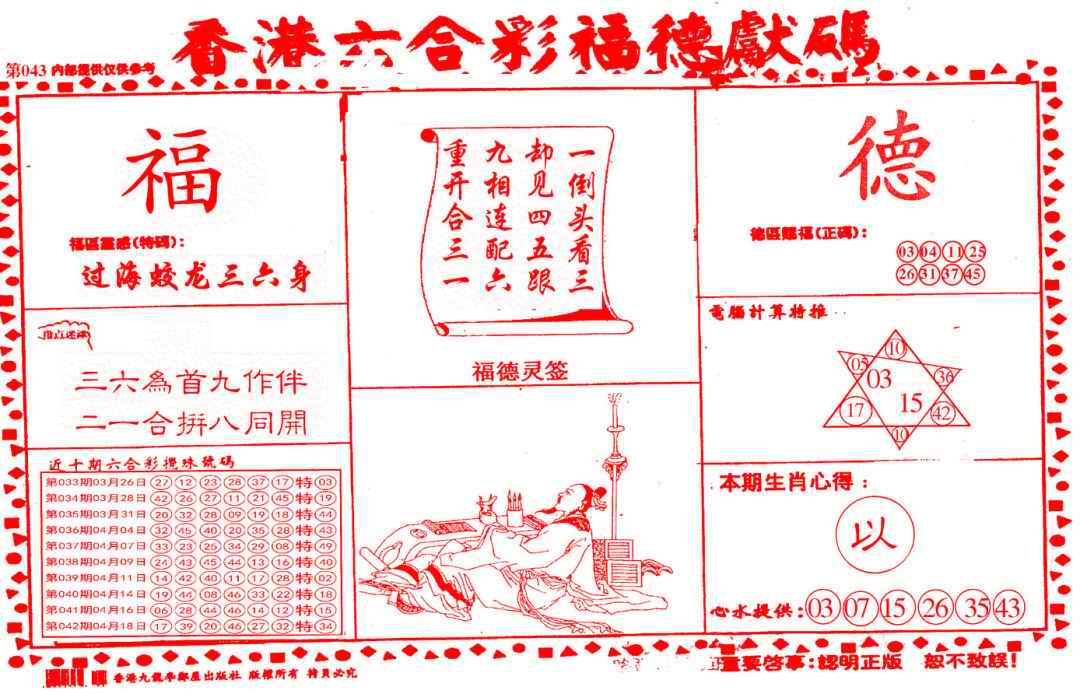 香港六合彩福德獻碼
第043 内部提供仅供参考
福
福區靈感(特碼):
过海蛟龙三六身
指点迷津
三六為首九作伴
二一合拼八同開
近十期六合彩攪珠號碼
第033期03月26日 27 12 23 28 37 17 特 03
第034期03月28日 42 26 27 11 21 45 特 19
第035期03月31日 20 32 28 09 19 18 特 44
第036期04月04日 32 45 40 20 35 28 特 43
第037期04月07日 33 23 25 34 29 08 特 49
第038期04月09日 24 43 45 44 13 16 特 40
第039期04月11日 14 42 40 11 17 28 特 02
第040期04月14日 19 44 08 46 33 22 特 18
第041期04月16日 06 28 44 46 14 12 特 15
第042期04月18日 17 39 20 46 27 32 特 34
一倒头看三
却见四五跟
九相连配六
重开合三一
福德灵签
德
德區賜福(正碼):
03 04 11 25
26 31 37 45
電腦計算特推
10
05 03 36
17 15 42
10
本期生肖心得:
以
心水提供: 03 07 15 26 35 43
香港九龍學鄰屋出版社 版權所有 特員必究
重要啓事:認明正版 恕不致誤!